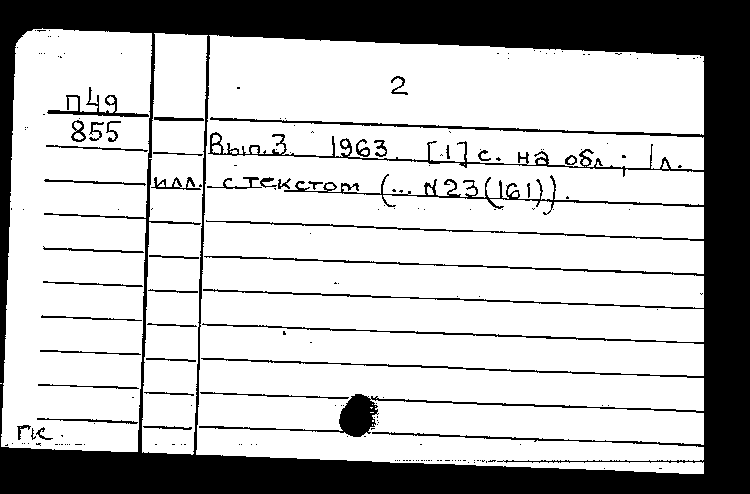 2
П49
855
Вып.3. 1963. [1] с. на обл.; 1 л.
илл. с текстом (... N23(161)).
ПК